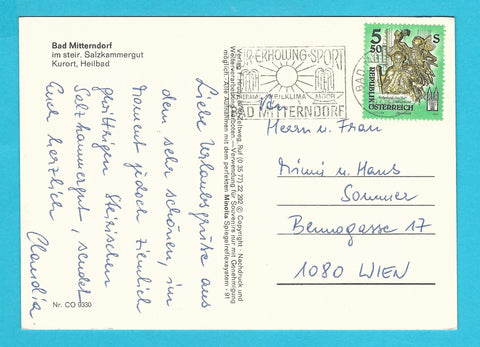 Bad Mitterndorf
im steir. Salzkammergut
Kurort, Heilbad
Liebe Urlaubsgrüße aus
dem sehr schönen, im
Moment jedoch ziemlich
Steirischen
Salzkammergut, sendet
Euch herzlich Claudia.
Nr. CO 9330
Ruf (0 35 77) 22 292 © Copyright - Nachdruck und
Weiterverarbeitung verboten. - Verwendung für Souvenirs nur mit Genehmigung
möglich - Alle Aufnahmen mit dem perfekten Minolta Spiegelreflexsystem - 91
ERHOLUNG·SPORT
HEILKLIMA MOOR
BAD MITTERNDORF
BAD
5 50 S
REPUBLIK
ÖSTERREICH
Herrn u. Frau
Mimi u. Hans
Sommer
Bennogasse 17
1080 WIEN